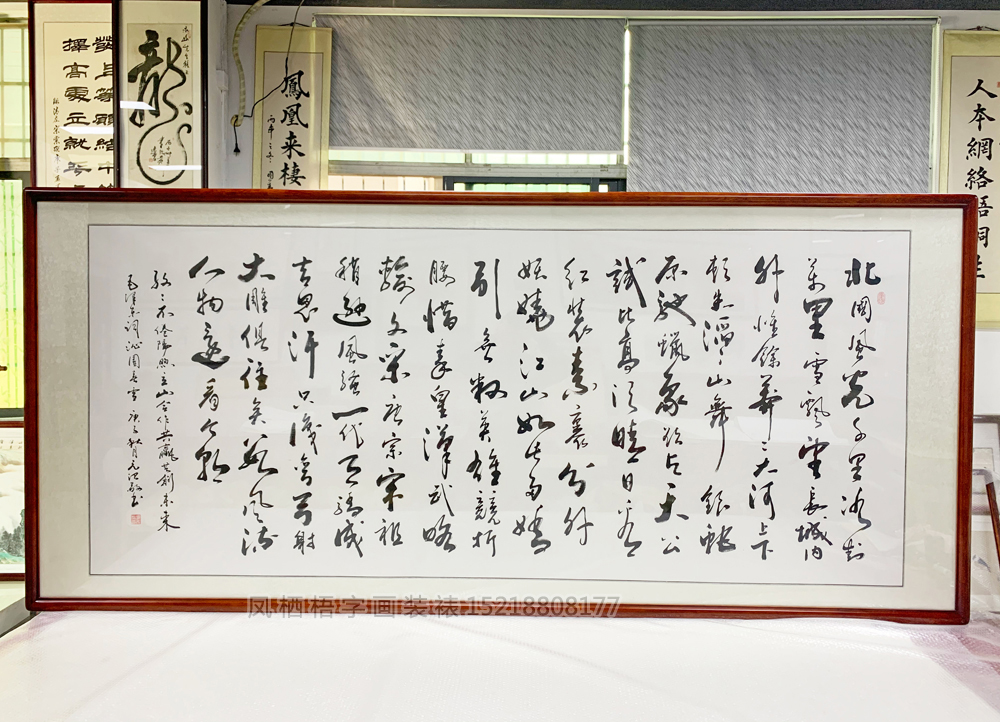 北國風光千里冰封
萬里雪飄望長城內
外惟餘莽〻大河上下
頓失滔〻山舞銀蛇
原馳蠟象欲與天公
試比高須晴日看
紅裝素裹分外
妖嬈江山如此多嬌
引無數英雄競折
腰惜秦皇漢武略
輸文采唐宗宋祖
稍遜風騷一代天驕成
吉思汗只識彎弓射
大雕俱往矣數風流
人物還看今朝
不倦 合作共贏共創未來
毛澤東詞沁園春雪 秋月 書
擇高處立就
龍
鳳凰来棲
人本網絡梧桐生
凤栖梧字画装裱15218808177